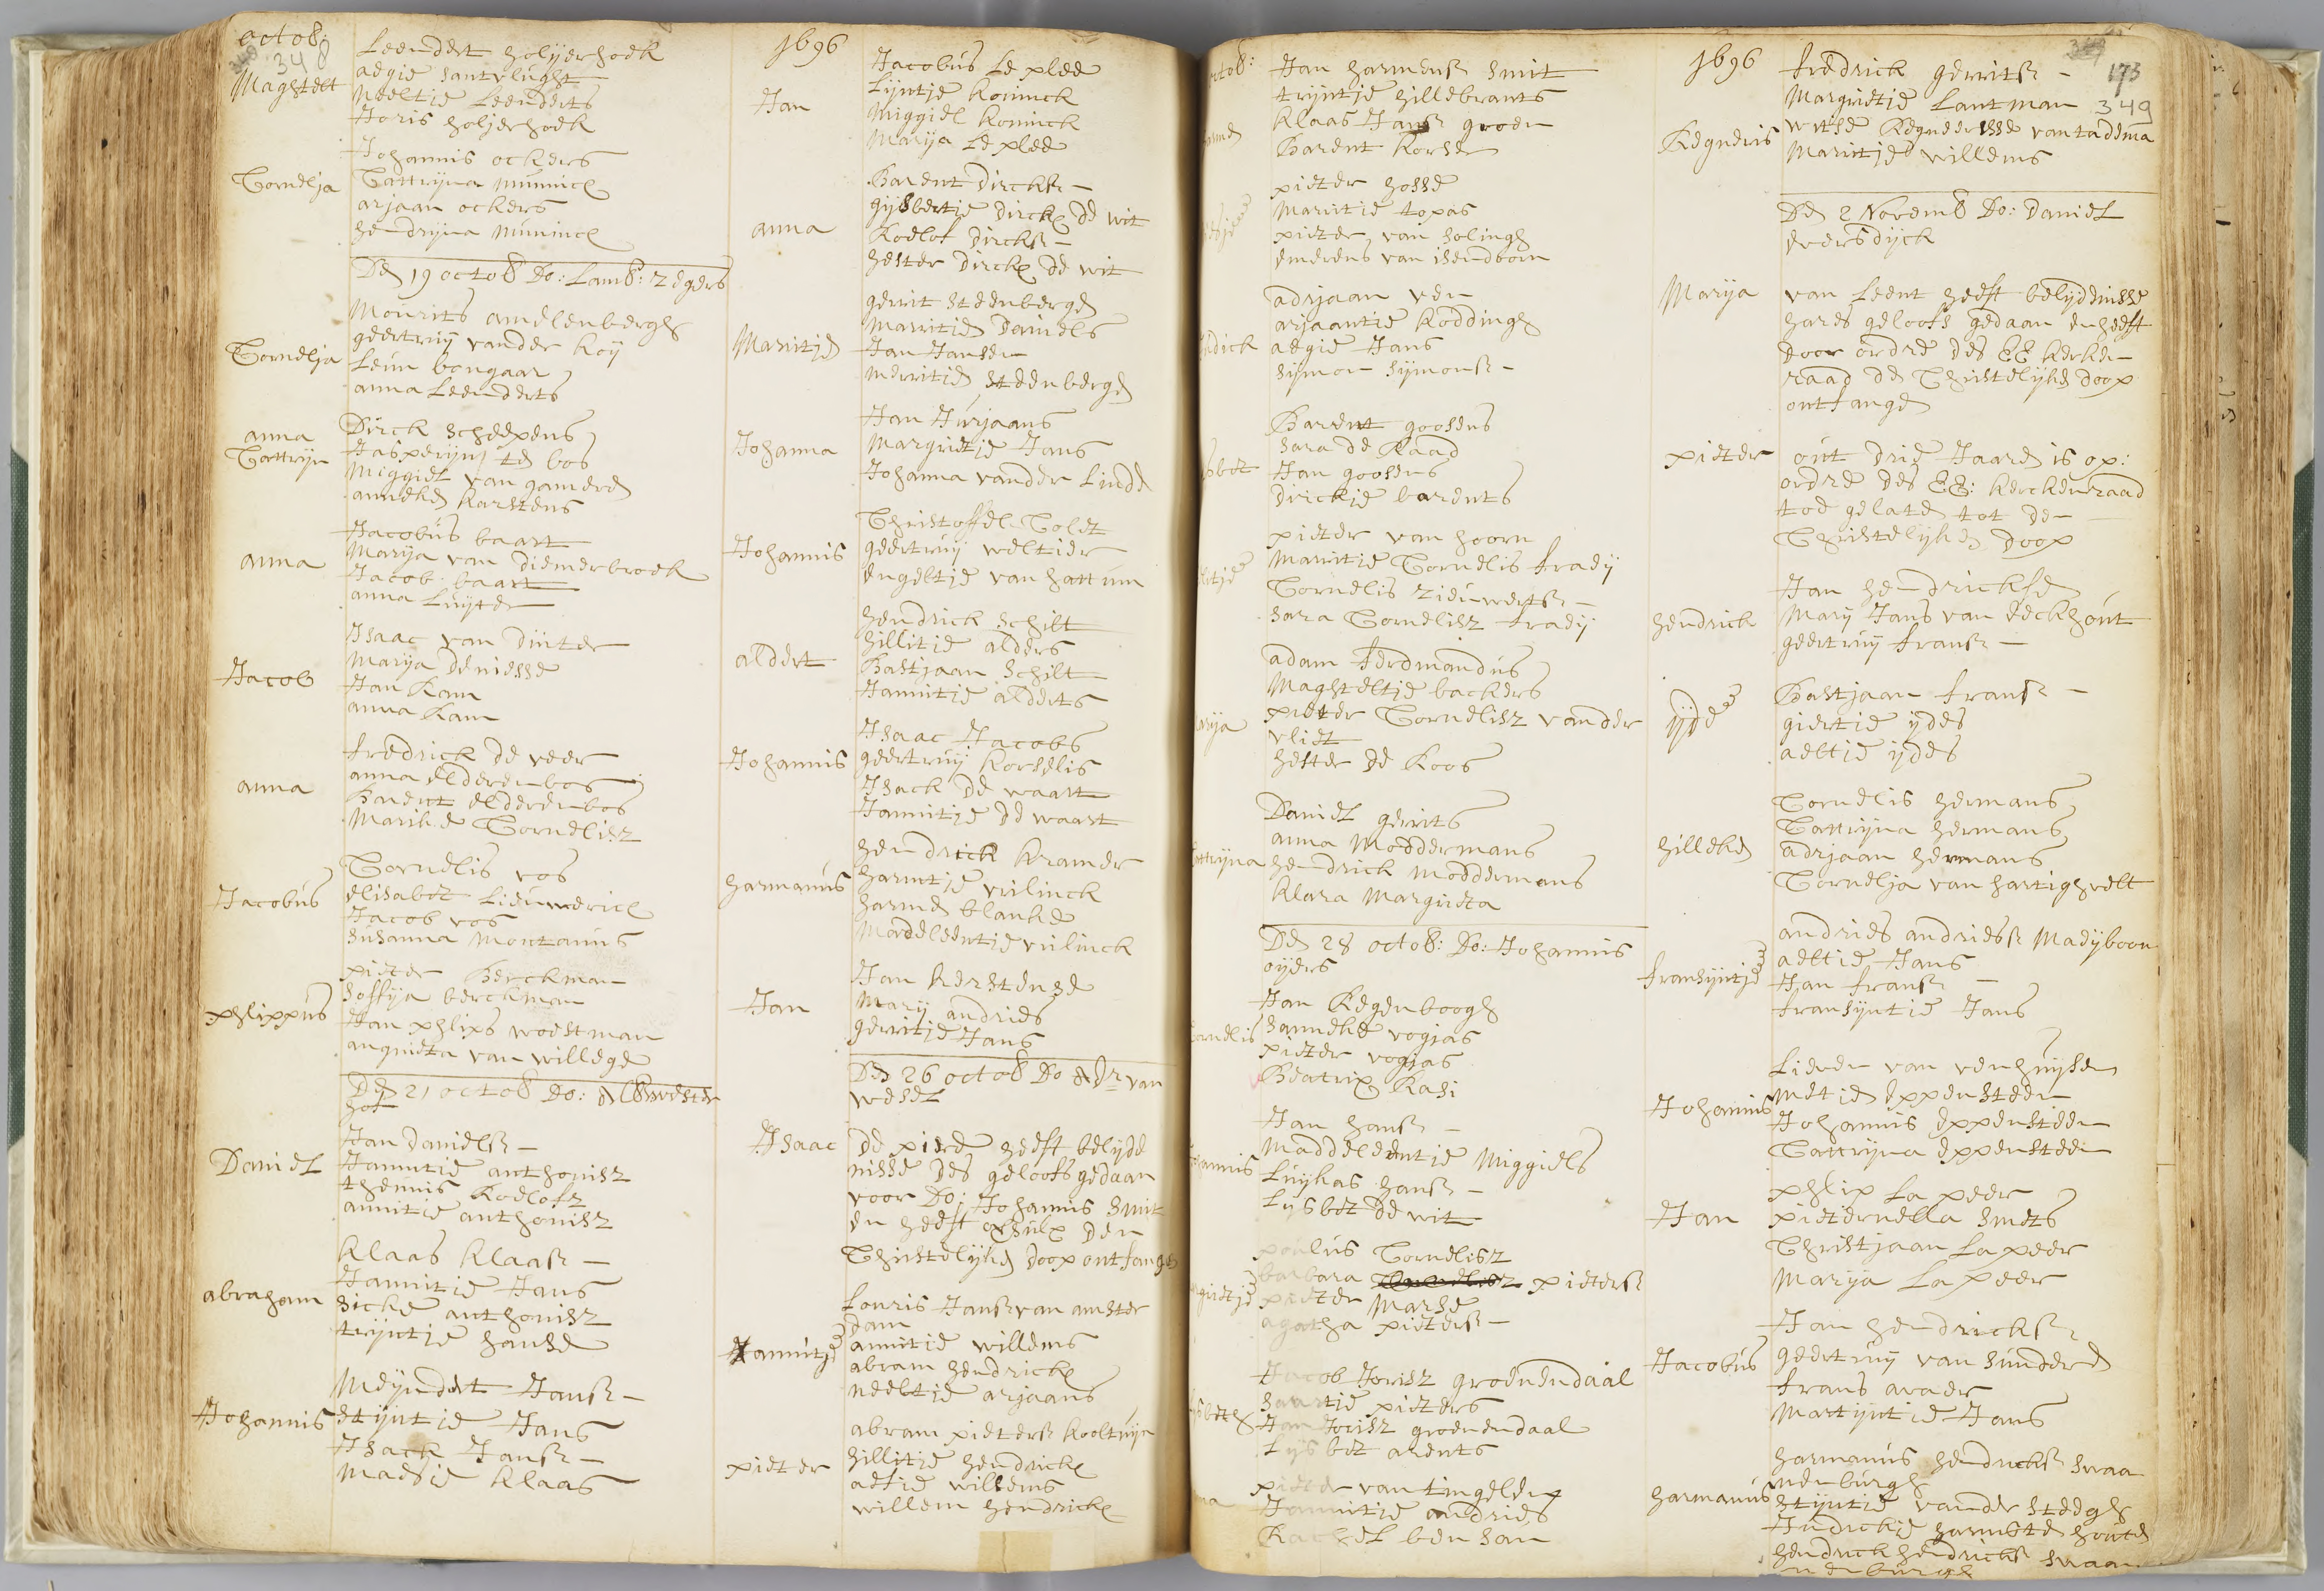 octob:
348
1696
Maghtelt
Leendert holjerhoek
aegie santvlught
Neeltie Leenderts
Joris holjerhoek
Cornelja
Johannis ockers
Cattryna Munnick
arjaan ockers
hendryna Munnick
Den 19 octob Do: Lamb: Zegers
Cornelja
Mourits amelenbergh
geertruij vander Koij
Leun bongaar
anna Leenderts
anna
Cattryn
Dirck scheepens
Jasperijn te bos
Miggiel van gameren
anneken Karstens
anna
Jacobus baart
Marija van Diemerbroek
Jacob baart
anna Luijten
Jacob
Isaac van Dinter
Marija deniesse
Jan Kam
anna Kam
anna
fredrick de veer
anna elderenbos
Barent elderenbos
Marike Cornelisz
Jacobus
Cornelis vos
elisabet
Jacob vos
susanna Montanus
phlippus
pieter Berckman
soffija berckman
Jan phlips woestman
angnieta van willege
Den 21 octob Do:
hof
Daniel
Jan Danielsz
Jannitie anthonisz
theunis Roelofs
annitie anthonisz
abraham
Klaas Klaasz
Jannitie Jans
sicke anthonisz
trijntie hanse
Johannis
Meijndert Jansz
stijntie Jans
Isack Jansz
Maesie Klaas
Jan
Jacobus Le plee
Lijntje Koninck
Miggiel Koninck
Marija Le plee
anna
Barent Dircksz
gijsbertie Dircks de wit
Roelof Dircksz
hester Dircks de wit
Marritje
gerrit steenbergen
Marritie Daniels
Jan Jansen
merritie steenbergen
Johanna
Jan Jurjaans
Margrietje Jans
Johanna vander Linde
Johannis
Christoffel Colet
geertruij weltier
engeltje van hattum
aldert
hendrick schilt
hillitie alders
Bastjaan schilt
Jannitie alderts
Johannis
Isaac Jacobs
geertruij Korselis
Isack de waart
Jannitje de waart
harmanus
hendrick Kramer
harmtje vrilinck
harmen blanke
Maddeleentje vrilinck
Jan
Jan Kerstense
Marij andries
gerritje Jans
Den 26 octob Do van
wesel
Isaac
De piere heeft belyde
nisse des geloofs gedaan
voor Do: Johannis Smit
en heeft den
Christelijken Doop ontfangen
Jannitje
Louris Jansz van amster
dam
annitie willems
abram hendricks
neeltie arjaans
pieter
abram pietersz Kooltuijn
hillitie hendricks
aefie willems
willem hendricks
octob:
1696
173
349
Jan harmensz Smit
trijntie hillebrants
Klaas Jansz groen
Barent Korse
pieter hosse
Marritie topas
pieter van solingh
emerens van isendoorn
adrjaan ven
arjaantie Koddingh
aegie Jans
sijmon sijmonsz
Barent goossens
sara de Raad
Jan goossens
Dirckje barents
pieter van hoorn
Marritie Cornelis fradij
Cornelis zieuwertsz
sara Cornelisz fradij
arija
adam ferdinandus
Maghteltje backers
pieter Cornelisz vander
vliet
hester de Koos
Cattrijna
Daniel gerrits
anna Moddermans
hendrick Moddermans
Klara Margrieta
Den 28 octob: Do: Johannis
oijers
Cornelis
Jan Regenboogh
Janneke vogias
pieter vogias
Beatrix Kasi
Johannis
Jan hansz
Maddeleentje Miggiels
Luijkas hansz
Lijsbet de wit
poulus Cornelisz
barbara pietersz
pieter Marse
agatha pietersz
Jacob Jorisz groenendaal
saartie pieters
Jan Jorisz groenendaal
Lijsbet arents
pieter van tingelen
Jannitie andries
Rachel ben san
Regneris
fredrick gerritsz
Margrietie Lantman
wttse Regneersse van taddema
Marritje willems
Den 2 Novemb Do: Daniel
eversdijck
Marija
van Leent heeft belijdenisse
hares geloofs gedaan en heeft
door ordre des EE Kerken
raad de Christelijke doop
ontfangen
pieter
out drie Jaaren is op:
ordre des EE: Kerckenraad
toe gelaten tot den
Christelijken Doop
hendrick
Jan hendrickse
Marij Jans van eeckhout
geertruij fransz
ijde
Bastjaan fransz
giertie ijdes
aeltie ijdes
hilleke
Cornelis hermans
Cattrijna hermans
adrjaan hermans
Cornelja van hartighvelt
fransijntje
andries andriesz Madijboon
aeltie Jans
Jan fransz
fransijntie Jans
Johannis
Lieven van venhuijsen
metje eppensteen
Johannis eppensteen
Cattrijna eppensteen
Jan
phlip La peer
pieternella smets
Christjaan La peer
Marija La peer
Jacobus
Jan hendricksz
geertruij van sunderen
frans avaer
Martijntie Jans
harmanus
harmanus hendricksz swaa
nenburgh
stijntie vander steegh
hendrick hendricksz swaa
nenburgh